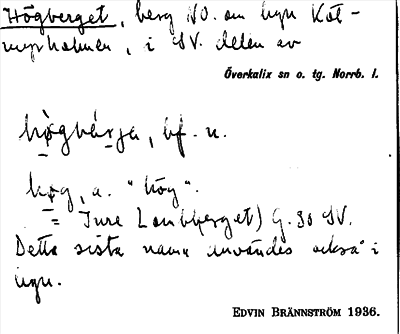 Högberget, berg NO. om byn Kol-
myrholmen, i SV. delen av
Överkalix sn o. tg. Norrb. l.
hògbær̀ja, bf. n.
høg, a. "hög".
= Jure L) G. 30 SV.
Detta sista namn användes också i
byn.
EDVIN BRÄNNSTRÖM 1936.